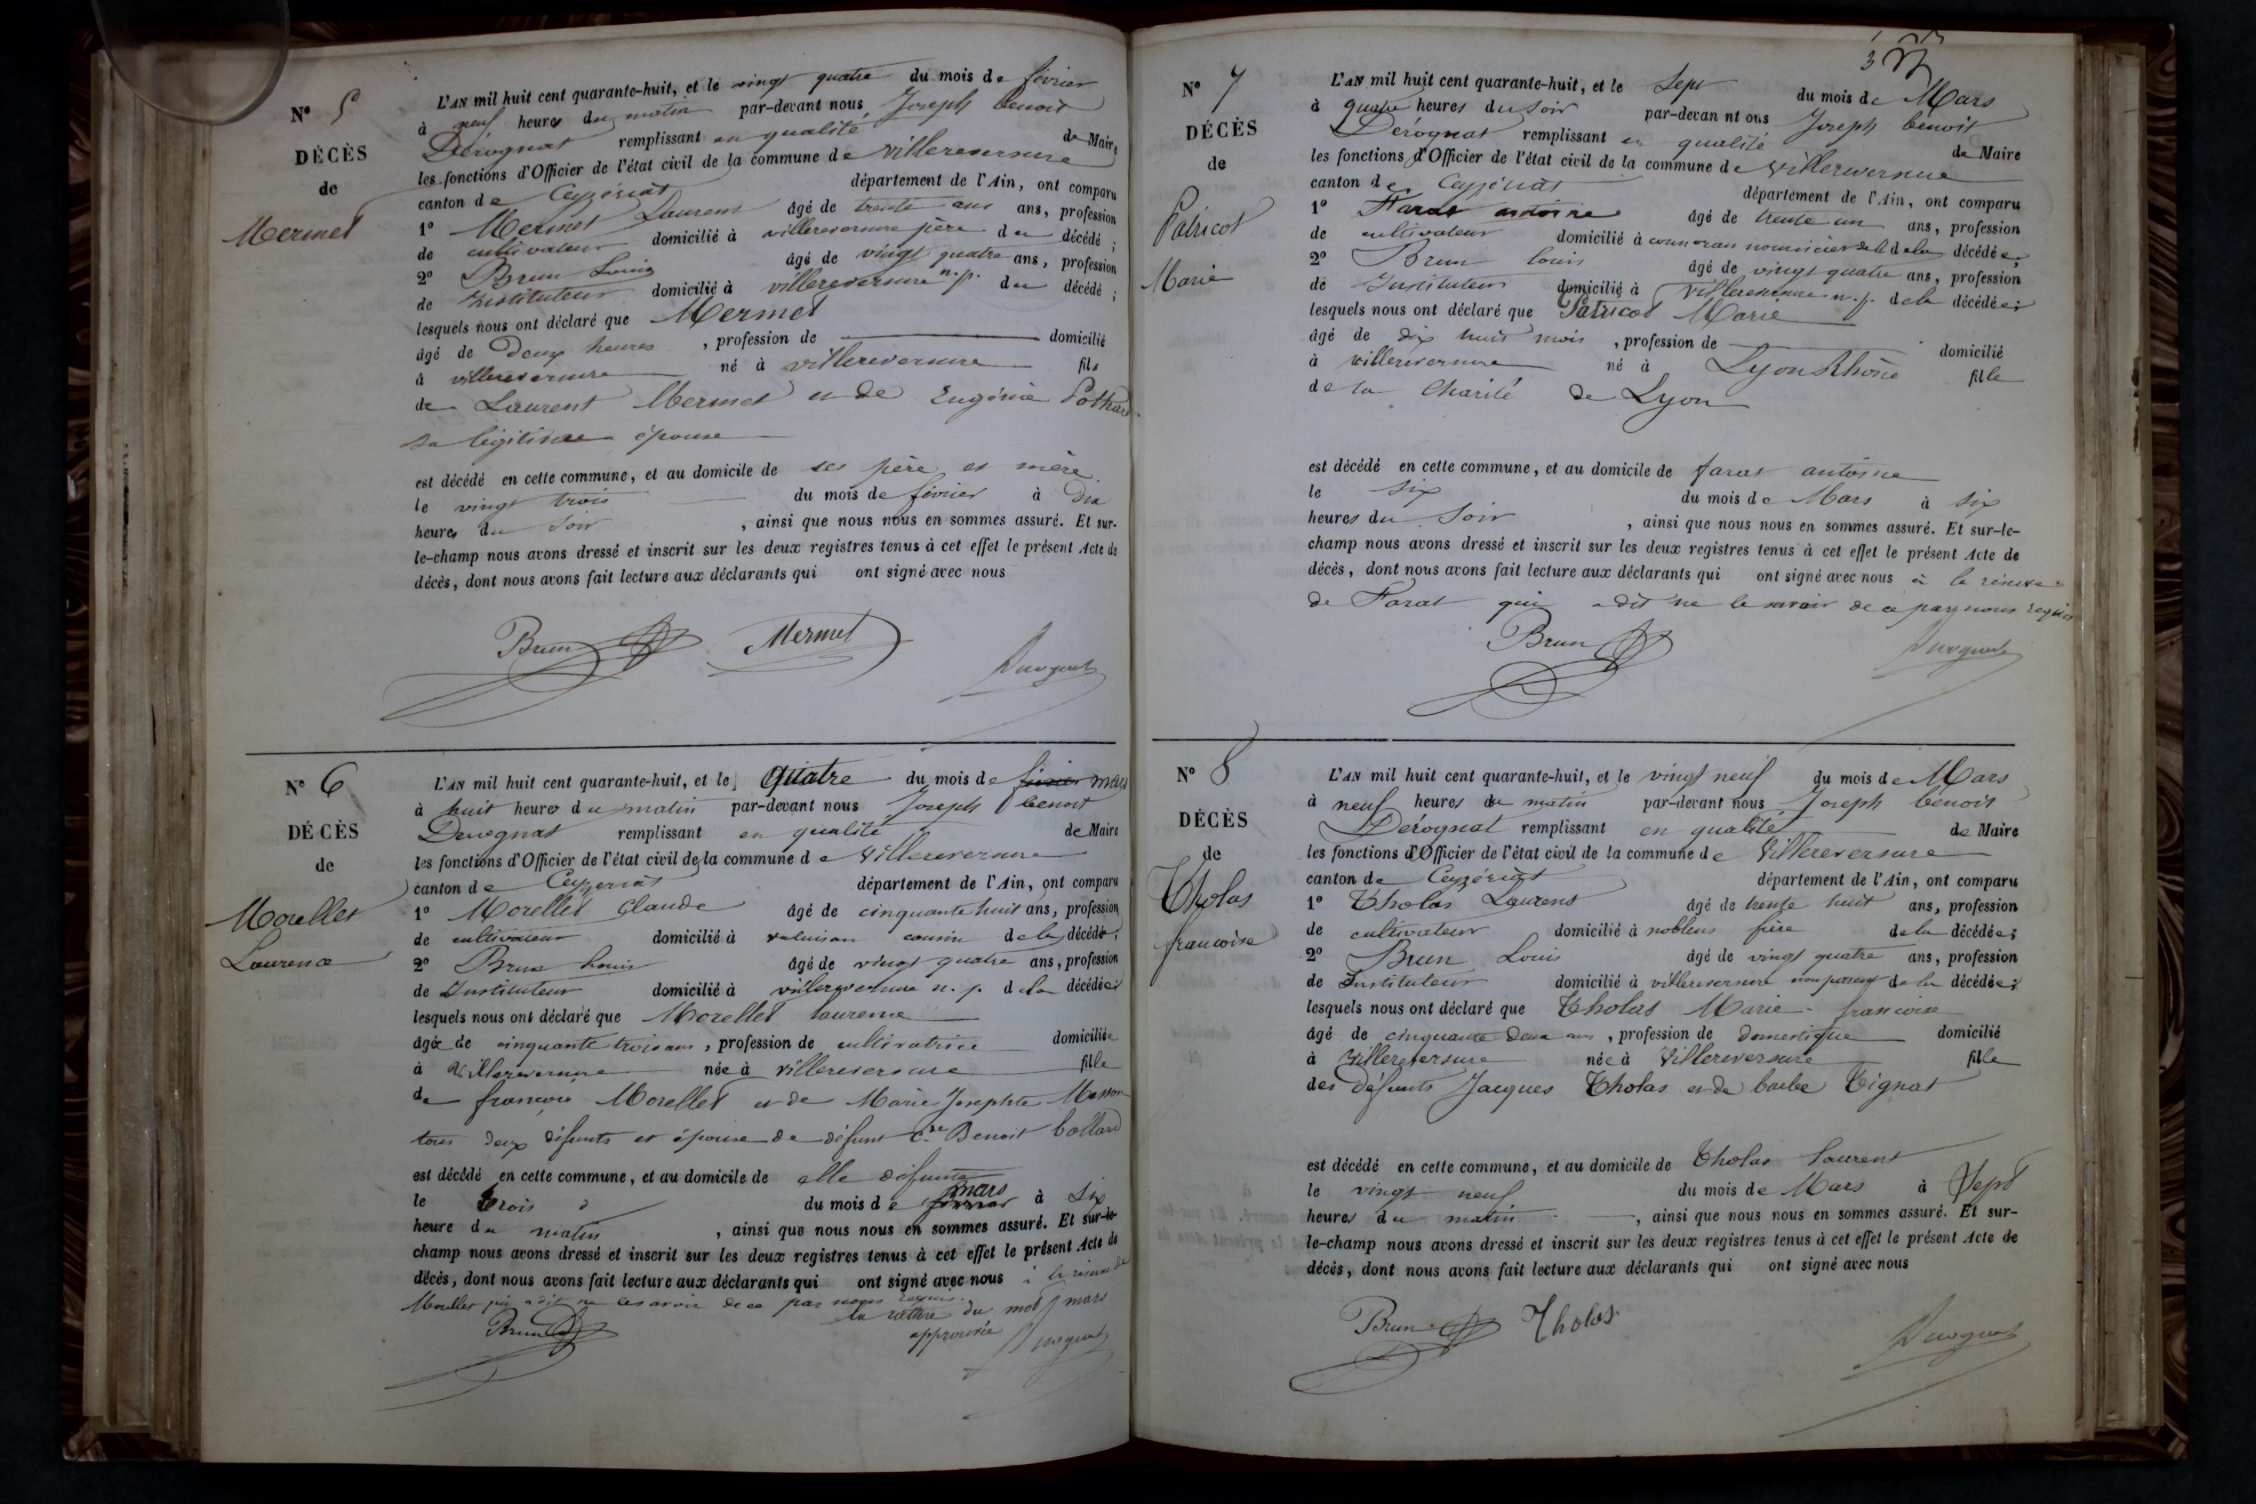 N° 5
DÉCÈS
de
Mermet
L'AN mil huit cent quarante-huit, et le vingt quatre du mois de février
à neuf heures du matin par-devant nous Joseph benoit
Dérognat remplissant en qualité de Maire
les fonctions d'Officier de l'état civil de la commune de villereversure
canton de Ceyzériat département de l'Ain, ont comparu
1° Mermet Laurent âgé de trente ans ans, profession
de cultivateur domicilié à villereversure père du décédé ;
2° Brun Louis âgé de vingt quatre ans, profession
de Instituteur domicilié à villereversure n. p. du décédé ;
lesquels nous ont déclaré que Mermet
âgé de Deux heures , profession de domicilié
à villereversure né à villereversure fils
de Laurent Mermet et de Eugénie Pothard
sa légitime épouse
est décédé en cette commune, et au domicile de ses père et mère
le vingt trois du mois de février à Dix
heures du Soir , ainsi que nous nous en sommes assuré. Et sur-
le-champ nous avons dressé et inscrit sur les deux registres tenus à cet effet le présent Acte de
décès, dont nous avons fait lecture aux déclarants qui ont signé avec nous
Brun Mermet Dérognat
N° 6
DÉCÈS
de
Morellet
Laurence
L'AN mil huit cent quarante-huit, et le quatre du mois de février mars
à huit heures du matin par-devant nous Joseph benoit
Derognat remplissant en qualité de Maire
les fonctions d'Officier de l'état civil de la commune de Villereversure
canton de Ceyzeriat département de l'Ain, ont comparu
1° Morellet Claude âgé de cinquante huit ans, profession
de cultivateur domicilié à cousin de la décédée ;
2° Brun Louis âgé de vingt quatre ans, profession
de Instituteur domicilié à villereversure n. p. de la décédée ;
lesquels nous ont déclaré que Morellet laurence
âgée de cinquante trois ans , profession de cultivatrice domiciliée
à Villereversure née à Villereversure fille
de françois Morellet et de Marie Josephte Masson
tous deux défunts et épouse de défunt Benoit Collard
est décédé en cette commune, et au domicile de elle défunte
le trois du mois de février mars à Six
heure du matin , ainsi que nous nous en sommes assuré. Et sur-le-
champ nous avons dressé et inscrit sur les deux registres tenus à cet effet le présent Acte de
décès, dont nous avons fait lecture aux déclarants qui ont signé avec nous à la réserve de
Morellet qui a dit ne le savoir de ce par nous requis.
la rature du mot mars
approuvée
Brun Dérognat
N° 7
DÉCÈS
de
Patricot
Marie
3
L'AN mil huit cent quarante-huit, et le Sept du mois de Mars
à quatre heures du Soir par-devan nt ous Joseph benoit
Dérognat remplissant en qualité de Maire
les fonctions d'Officier de l'état civil de la commune de Villereversure
canton de Ceyzériat département de l'Ain, ont comparu
1° Farat antoine âgé de trente un ans, profession
de cultivateur domicilié à nourricier de la décédée ;
2° Brun Louis âgé de vingt quatre ans, profession
de Instituteur domicilié à Villereversure n. p. de la décédée ;
lesquels nous ont déclaré que Patricot Marie
âgé de dix huit mois , profession de domicilié
à villereversure né à Lyon Rhône fille
de la Charité de Lyon
est décédé en cette commune, et au domicile de farat antoine
le Six du mois de Mars à six
heures du Soir , ainsi que nous nous en sommes assuré. Et sur-le-
champ nous avons dressé et inscrit sur les deux registres tenus à cet effet le présent Acte de
décès, dont nous avons fait lecture aux déclarants qui ont signé avec nous à la réserve
de Farat qui a dit ne le savoir de ce par nous requis
Brun Dérognat
N° 8
DÉCÈS
de
Tholas
francoise
L'AN mil huit cent quarante-huit, et le vingt neuf du mois de Mars
à neuf heures du matin par-devant nous Joseph benoit
Dérognat remplissant en qualité de Maire
les fonctions d'Officier de l'état civil de la commune de Villereversure
canton de Ceyzériat département de l'Ain, ont comparu
1° Tholas Laurent âgé de trente huit ans, profession
de cultivateur domicilié à noblens frère de la décédée ;
2° Brun Louis âgé de vingt quatre ans, profession
de Instituteur domicilié à villereversure non parent de la décédée ;
lesquels nous ont déclaré que Tholas Marie francoise
âgé de cinquante deux ans , profession de domestique domicilié
à Villereversure née à Villereversure fille
des défunts Jacques Tholas et de barbe Tignat
est décédé en cette commune, et au domicile de Tholas Laurent
le vingt neuf du mois de Mars à Sept
heures du matin , ainsi que nous nous en sommes assuré. Et sur-
le-champ nous avons dressé et inscrit sur les deux registres tenus à cet effet le présent Acte de
décès, dont nous avons fait lecture aux déclarants qui ont signé avec nous
Brun Tholas Dérognat